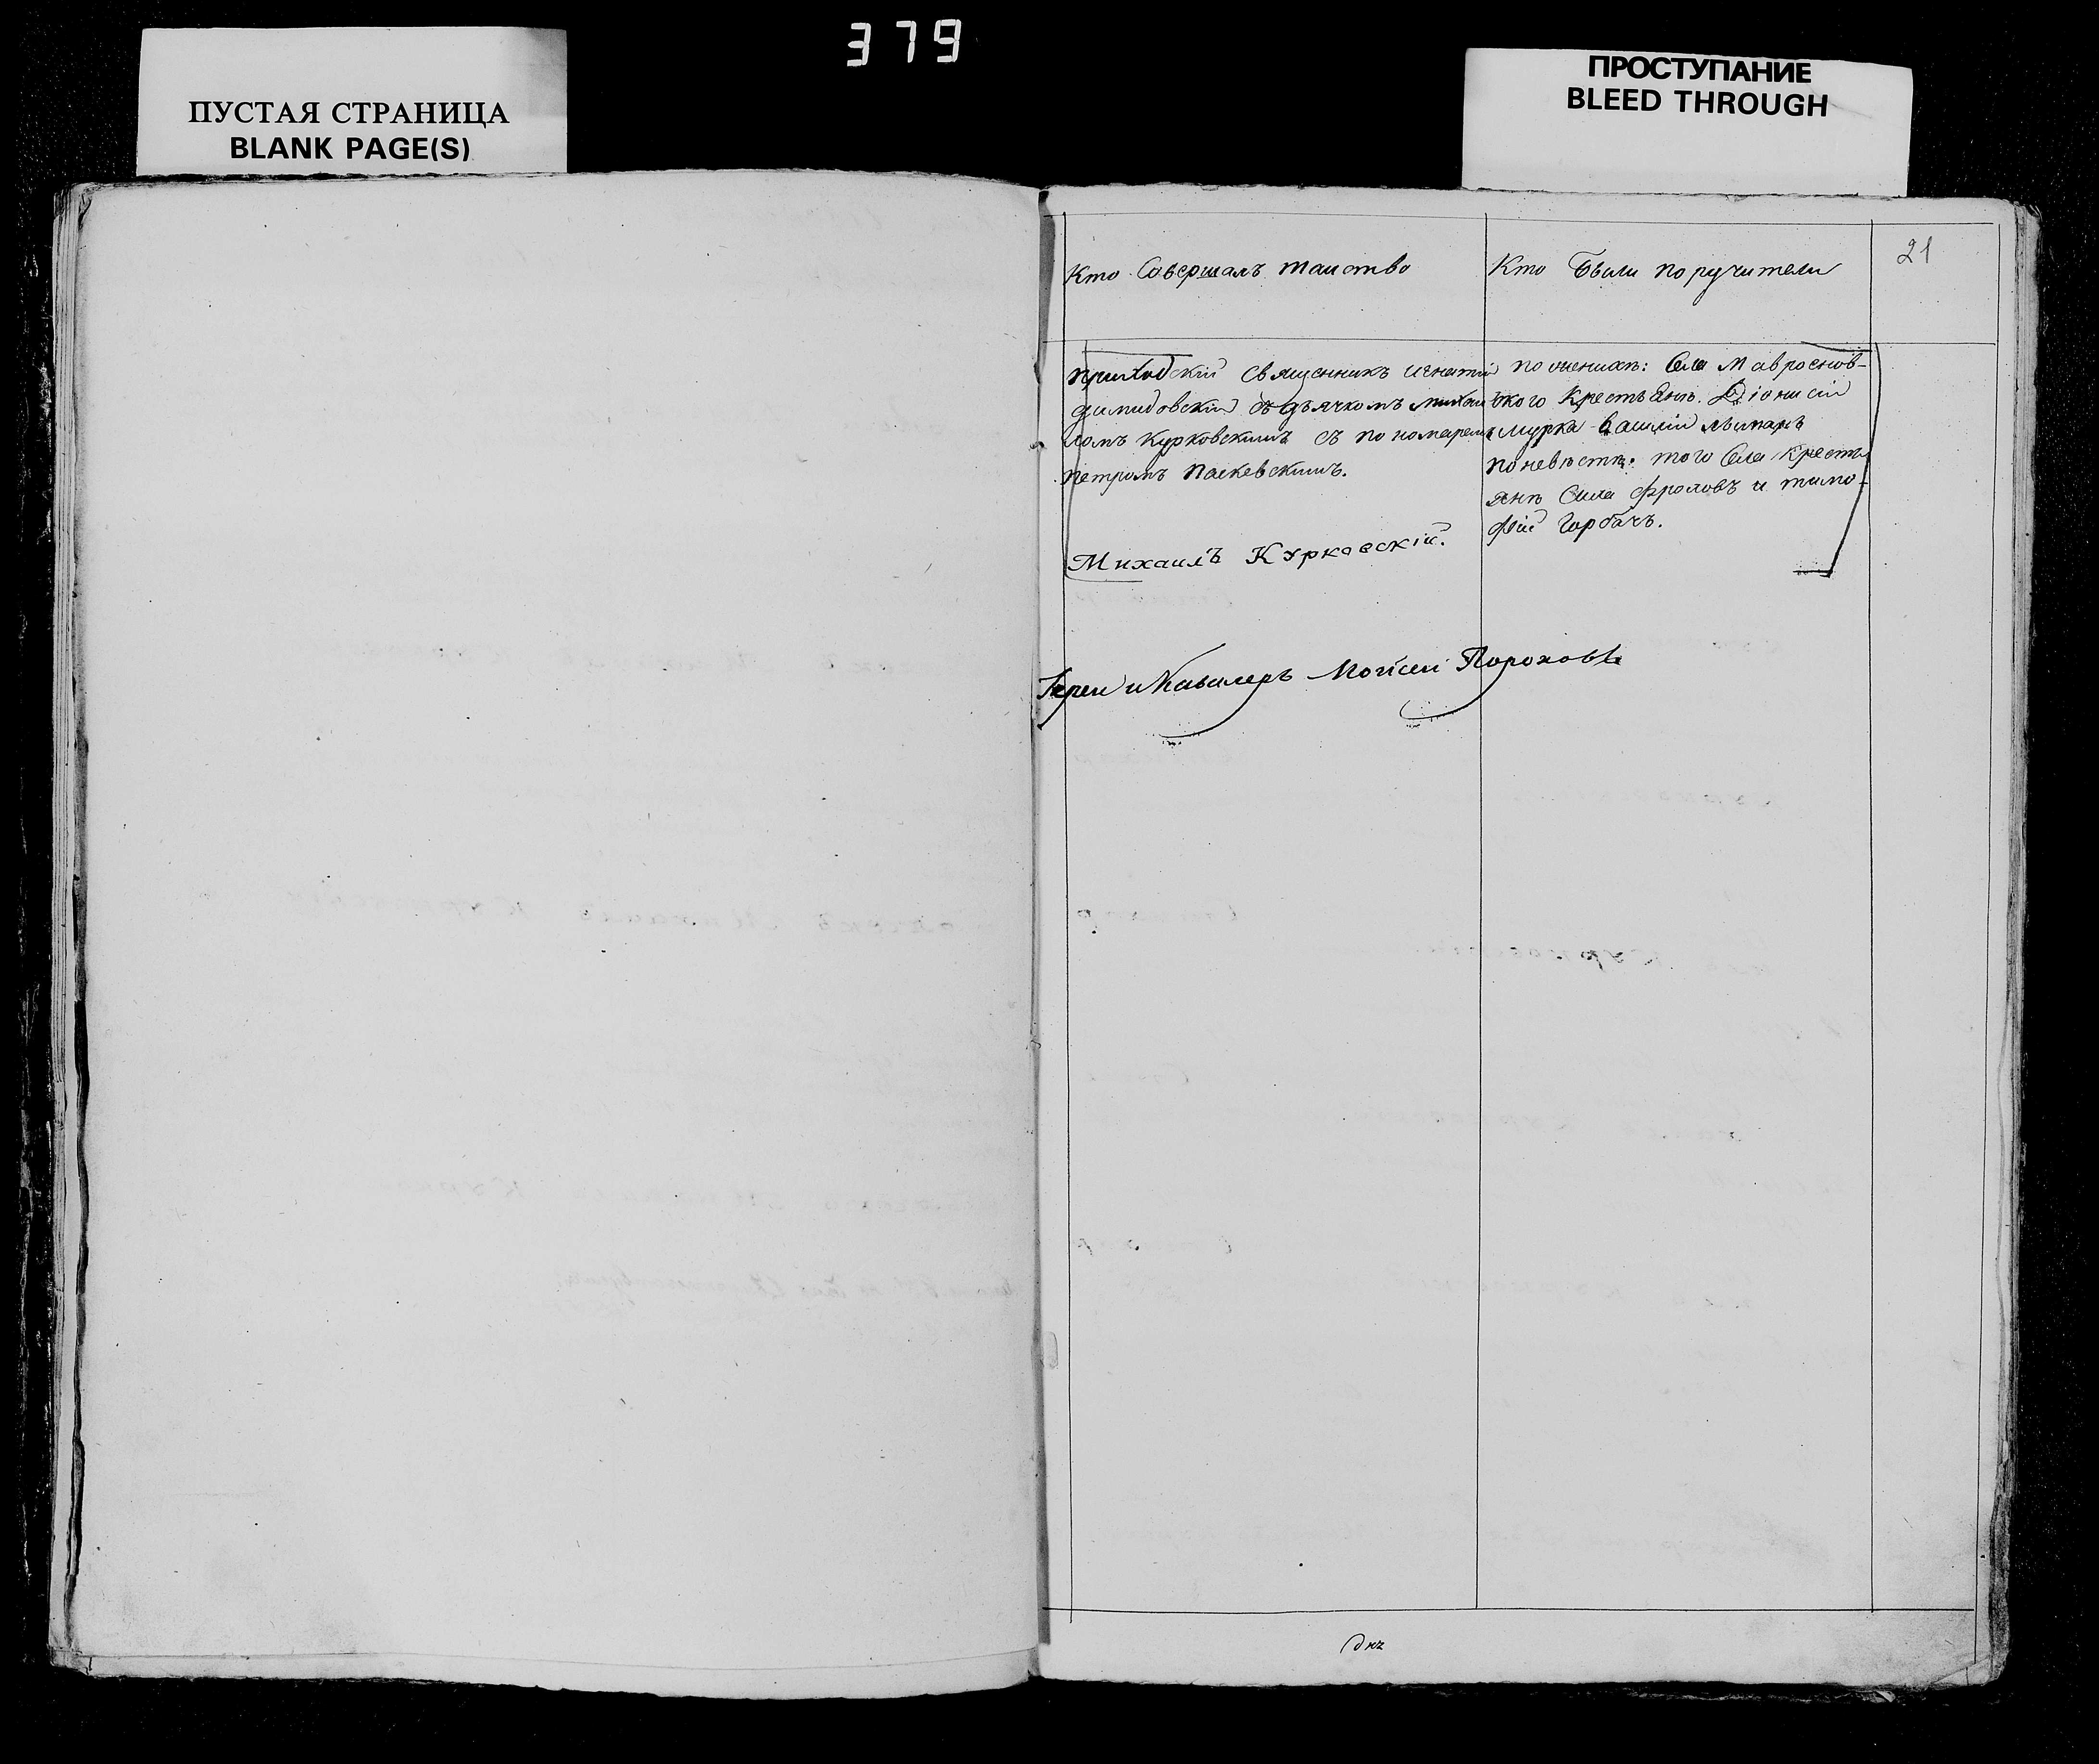 379
ПУСТАЯ СТРАНИЦА
BLANK PAGE(S)
ПРОСТУПАНИЕ
BLEED THROUGH
21
Кто Совершалъ таинство
Кто Были поручители
приходскій Священникъ игнатій
димидовскій съ дьячкомъ михаи
ломъ Курковскимъ съ пономаремъ
петромъ паскевскимъ.
Михаилъ Курковскій.
по женихѣ: Села Мавроенов-
ского Крестьяне. Діонисій
мурка Василій лымарь
по невѣстѣ: того Села Крестъ
яне Сила фроловъ и тимо-
фій Горбачъ.
Іерей и Кавалеръ Мойсей Пороховъ